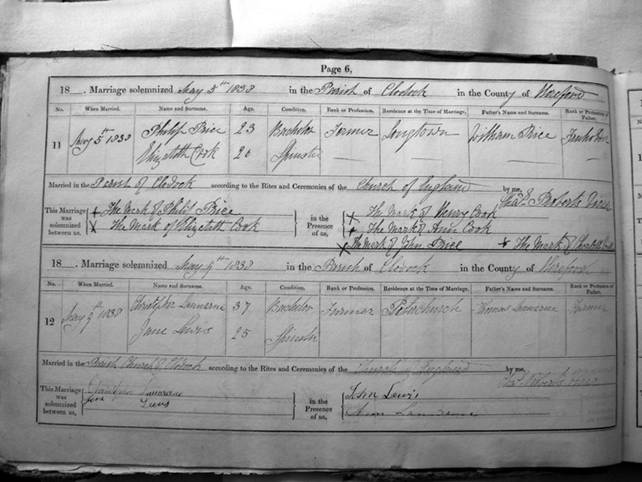 Page 6,
18 . Marriage solemnized May 5th 1838 in the Parish of Clodock in the County of Hereford
No. When Married. Name and Surname. Age. Condition. Rank or Profession. Residence at the Time of Marriage. Father's Name and Surname. Rank or Profession of Father.
11 May 5th 1838 Philip Price 23 Bachelor Farmer Longtown William Price
Elizabeth Cook 20 Spinster — — — —
Married in the Parish of Clodock according to the Rites and Ceremonies of the Church of England by me,
Roberts
This Marriage was solemnized between us, X The Mark of Philip Price
X The Mark of Elizabeth Cook
in the Presence of us, X The Mark of Henry Cook
X The Mark of Ann Cook
X The Mark of John Price X The Mark of
18 . Marriage solemnized May 9th 1838 in the Parish of Clodock in the County of Hereford
No. When Married. Name and Surname. Age. Condition. Rank or Profession. Residence at the Time of Marriage. Father's Name and Surname. Rank or Profession of Father.
12 May 9th 1838 Christopher 37 Bachelor Farmer Peterchurch Thomas Farmer
Jane Lewis 25 Spinster
Married in the Parish Church of Clodock according to the Rites and Ceremonies of the Church of England by me,
Roberts
This Marriage was solemnized between us,
Lewis
in the Presence of us, Lewis
Ann